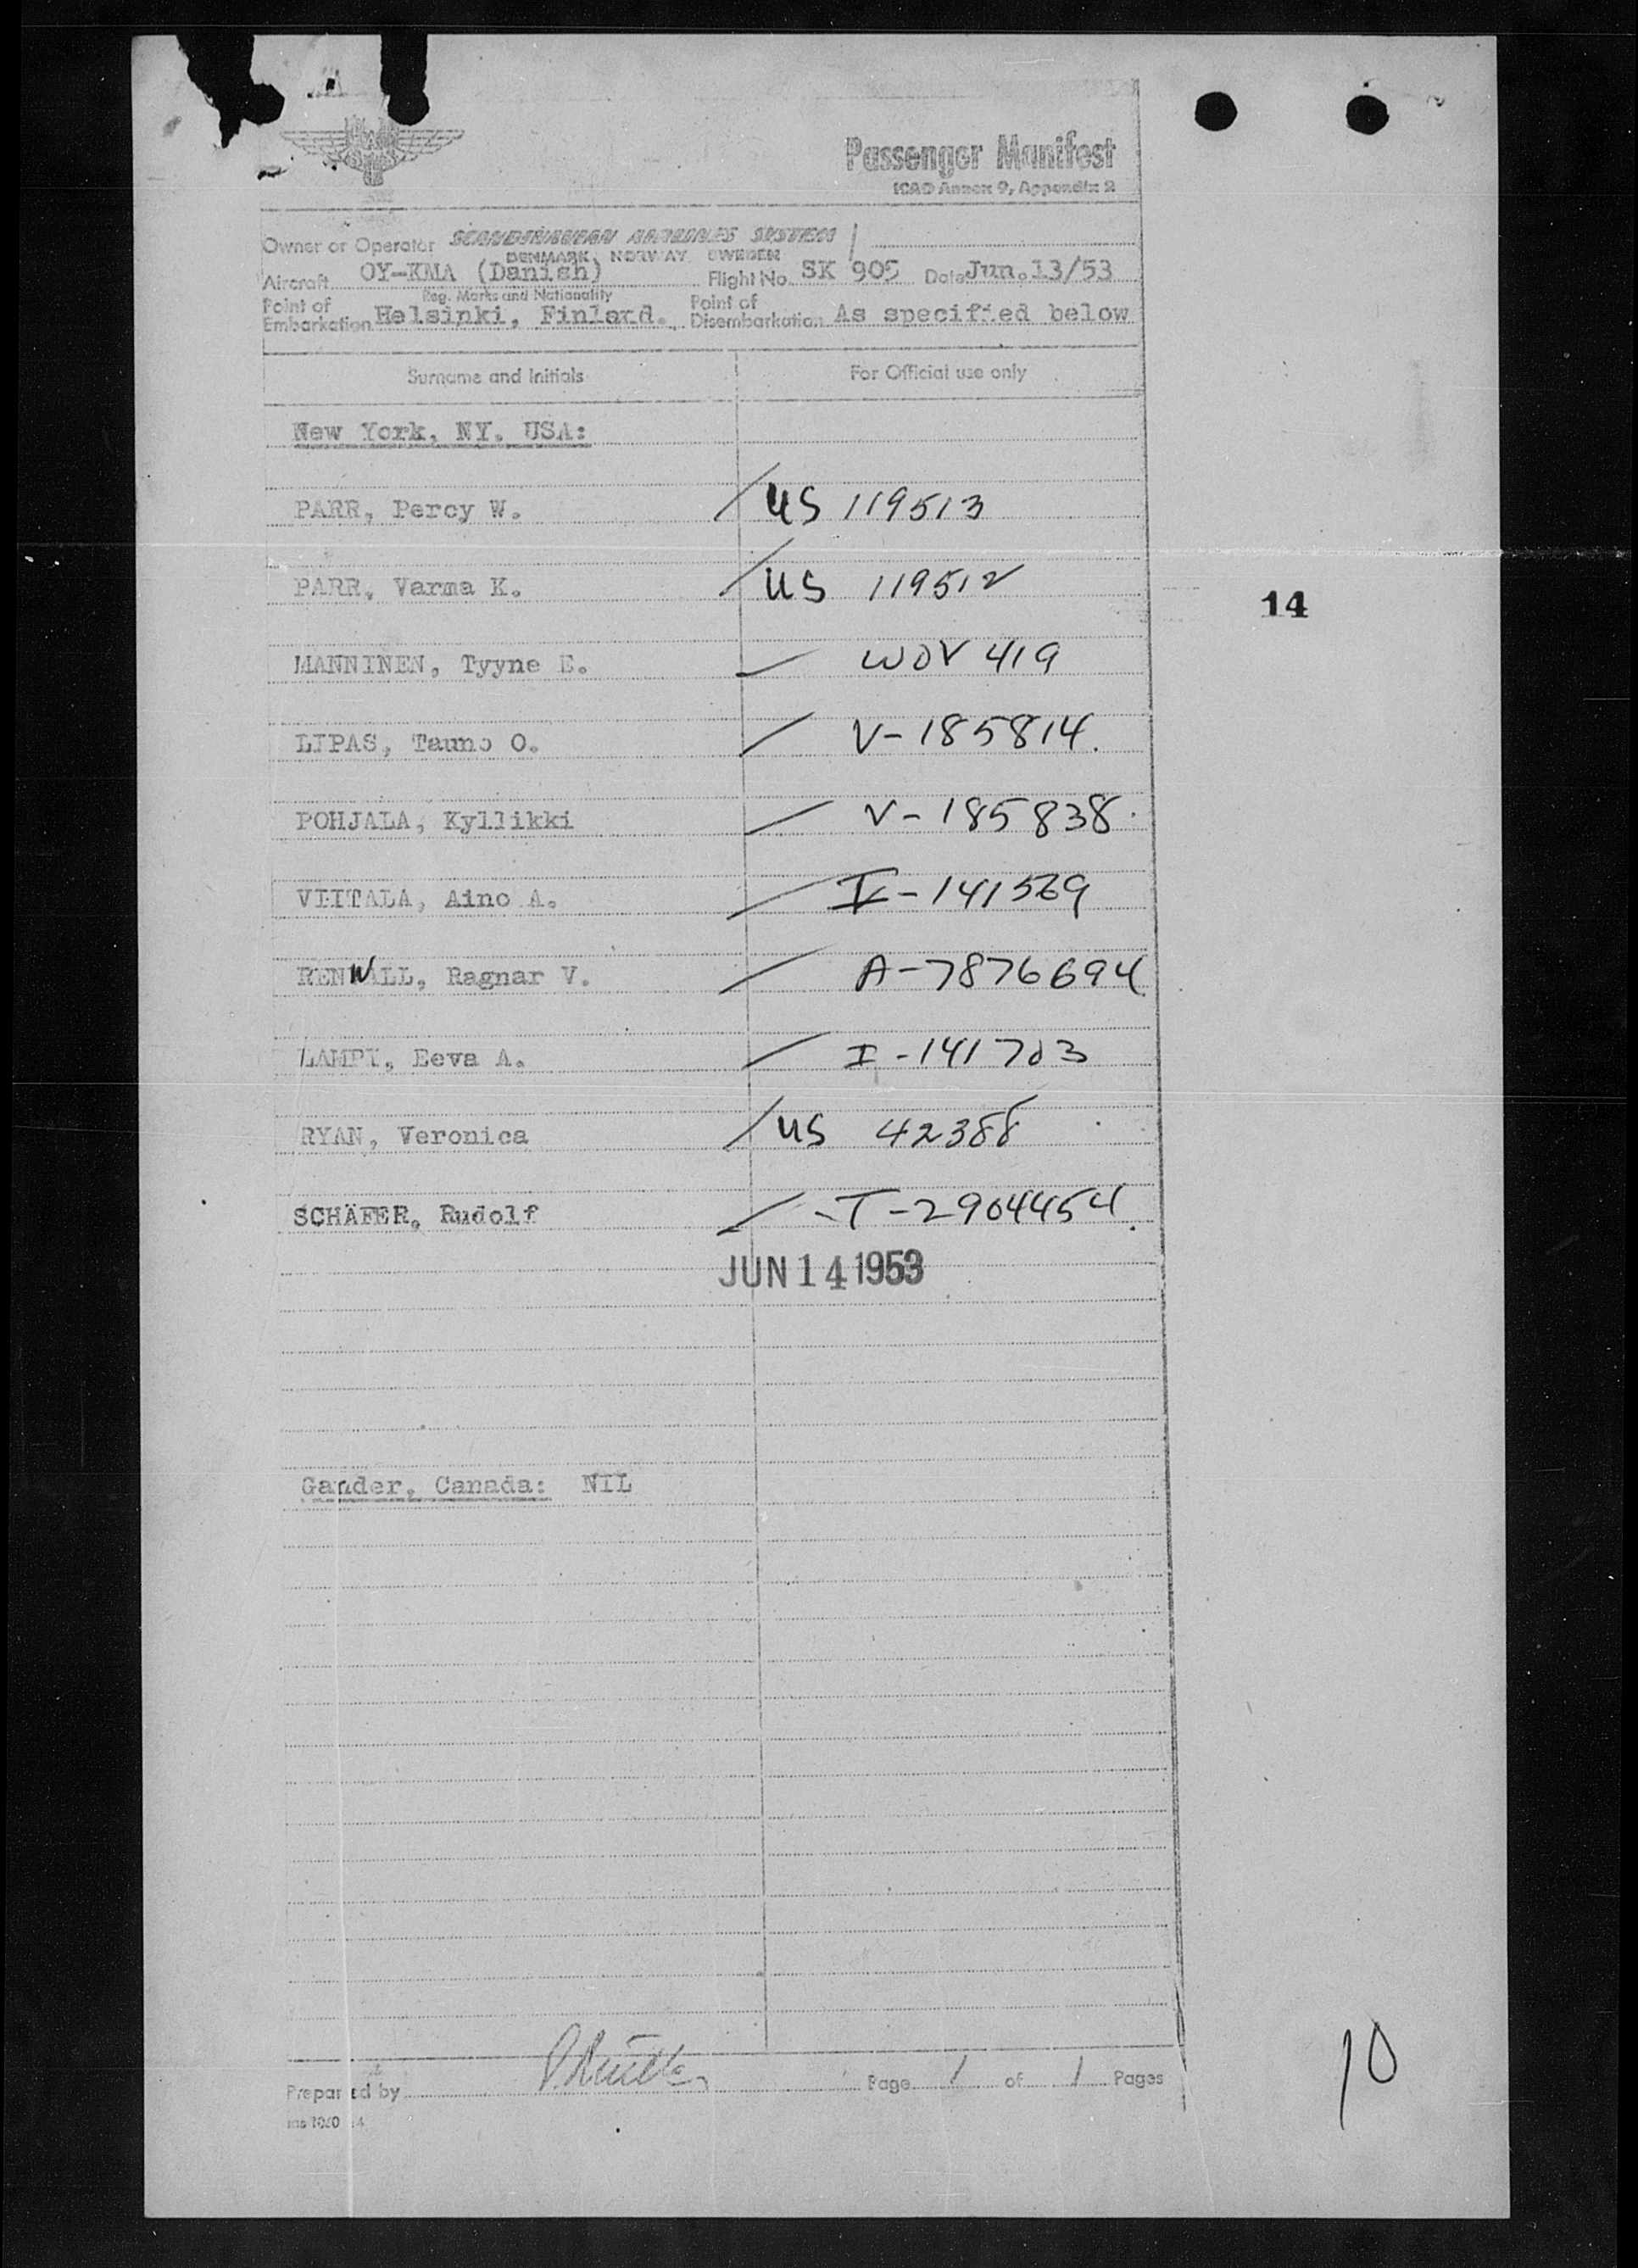 Passenger Manifest
ICAO Annex 9, Appendix 2
Owner or Operator SCANDINAVIAN AIRLINES SYSTEM
DENMARK, NORWAY, SWEDEN
Aircraft OY-KMA (Danish) Flight No. SK 905 Date Jun.13/53
Reg. Marks and Nationality
Point of Embarkation Helsinki, Finland. Point of Disembarkation As specified below
Surname and Initials For Official use only
New York, NY. USA:
PARR, Percy W. / US 119513
PARR, Varma K. / US 119512
MANNINEN, Tyyne E. / WOV 419
LIPAS, Tauno O. / V-185814.
POHJALA, Kyllikki / V-185838.
VIITALA, Aino A. / I-141569
RENWALL, Ragnar V. / A-7876694
LAMPI, Eeva A. / I-141703
RYAN, Veronica / US 42388
SCHÄFER, Rudolf / T-2904454
JUN 14 1953
14
Gander, Canada: NIL
Prepared by Page 1 of 1 Pages
10